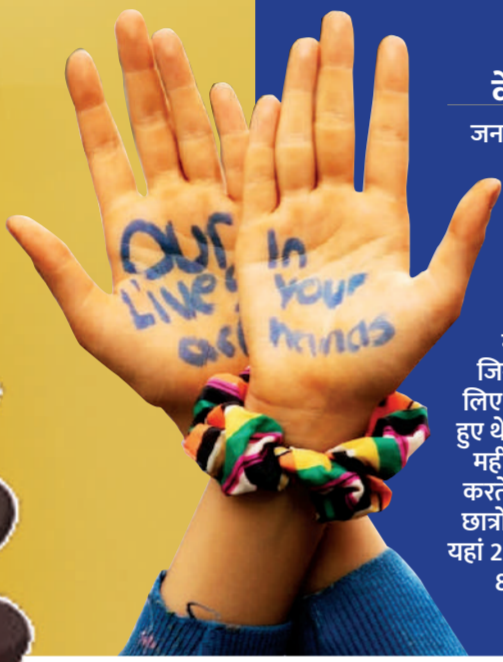 our
Live
In
your
hands
जन
जि
लिए
हुए थे
मही
करते
छात्रों
यहां 2